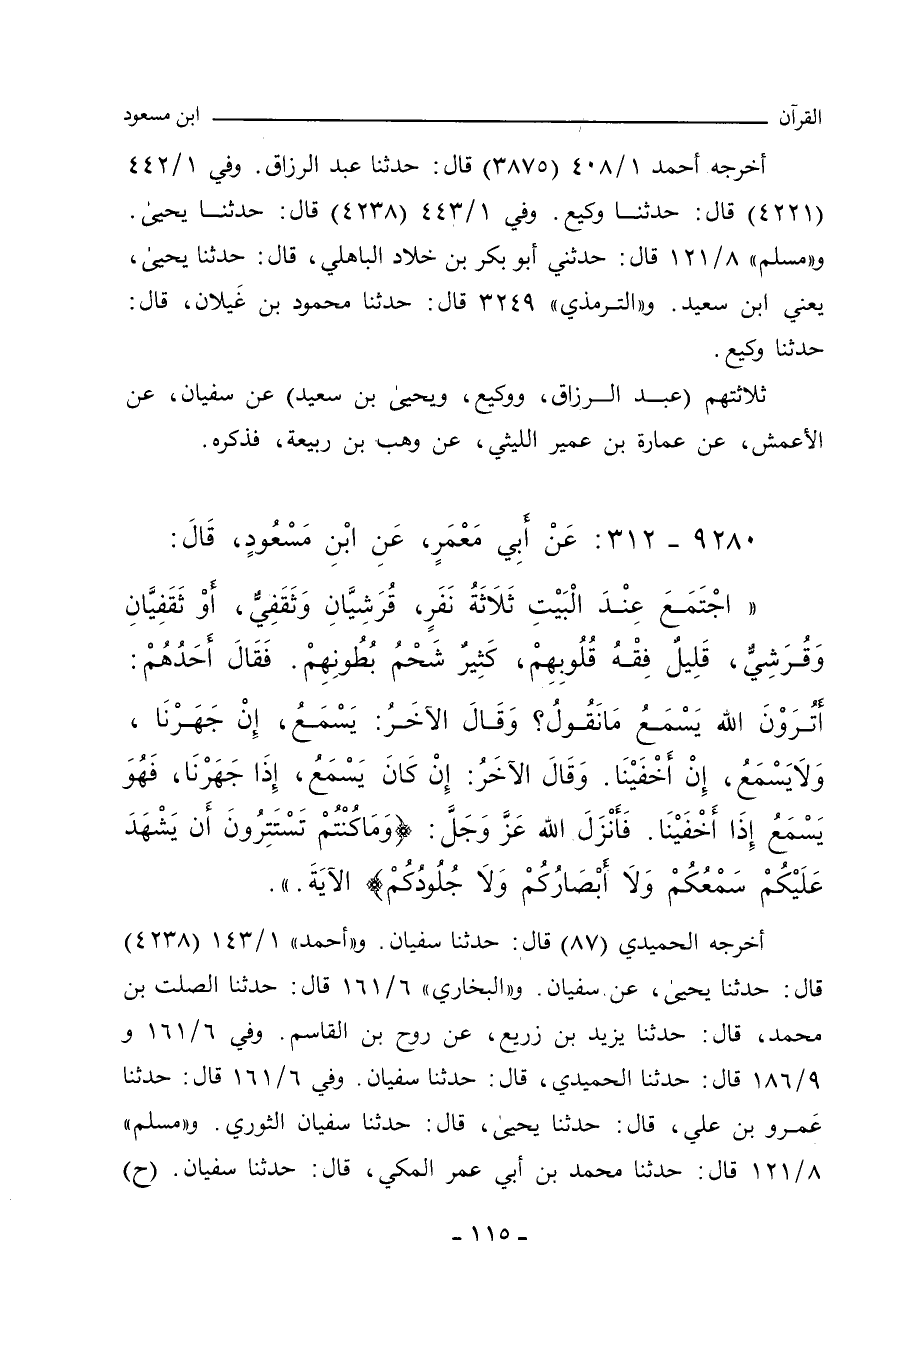 القرآن ـــــــــــــــــــــ ابن مسعود
أخرجه أحمد ٤٠٨/١ (٣٨٧٥) قال: حدثنا عبد الرزاق. وفي ٤٤٢/١
(٤٢٢١) قال: حدثنا وكيع. وفي ٤٤٣/١ (٤٢٣٨) قال: حدثنا يحيىٰ.
و«مسلم» ١٢١/٨ قال: حدثني أبو بكر بن خلاد الباهلي، قال: حدثنا يحيىٰ،
يعني ابن سعيد. و«الترمذي» ٣٢٤٩ قال: حدثنا محمود بن غَيلان، قال:
حدثنا وكيع.
ثلاثتهم (عبد الرزاق، ووكيع، ويحيىٰ بن سعيد) عن سفيان، عن
الأعمش، عن عمارة بن عمير الليثي، عن وهب بن ربيعة، فذكره.
٩٢٨٠ ـ ٣١٢: عَنْ أَبِي مَعْمَرٍ، عَنِ ابْنِ مَسْعُودٍ، قَالَ:
« اجْتَمَعَ عِنْدَ الْبَيْتِ ثَلَاثَةُ نَفَرٍ، قُرَشِيَّانِ وَثَقَفِيٌّ، أَوْ ثَقَفِيَّانِ
وَقُرَشِيٌّ، قَلِيلٌ فِقْهُ قُلُوبِهِمْ، كَثِيرٌ شَحْمُ بُطُونِهِمْ. فَقَالَ أَحَدُهُمْ:
أَتُرَوْنَ الله يَسْمَعُ مَانَقُولُ؟ وَقَالَ الآخَرُ: يَسْمَعُ، إِنْ جَهَرْنَا ،
وَلَايَسْمَعُ، إِنْ أَخْفَيْنَا. وَقَالَ الآخَرُ: إِنْ كَانَ يَسْمَعُ، إِذَا جَهَرْنَا، فَهُوَ
يَسْمَعُ إِذَا أَخْفَيْنَا. فَأَنْزَلَ الله عَزَّ وَجَلَّ: ﴿وَمَاكُنْتُمْ تَسْتَتِرُونَ أَن يَشْهَدَ
عَلَيْكُمْ سَمْعُكُمْ وَلَا أَبْصَارُكُمْ وَلَا جُلُودُكُمْ﴾ الآيَةَ.».
أخرجه الحميدي (٨٧) قال: حدثنا سفيان. و«أحمد» ١٤٣/١ (٤٢٣٨)
قال: حدثنا يحيىٰ، عن سفيان. و«البخاري» ١٦١/٦ قال: حدثنا الصلت بن
محمد، قال: حدثنا يزيد بن زريع، عن روح بن القاسم. وفي ١٦١/٦ و
١٨٦/٩ قال: حدثنا الحميدي، قال: حدثنا سفيان. وفي ١٦١/٦ قال: حدثنا
عَمرو بن علي، قال: حدثنا يحيىٰ، قال: حدثنا سفيان الثوري. و«مسلم»
١٢١/٨ قال: حدثنا محمد بن أبي عمر المكي، قال: حدثنا سفيان. (ح)
ـ ١١٥ ـ